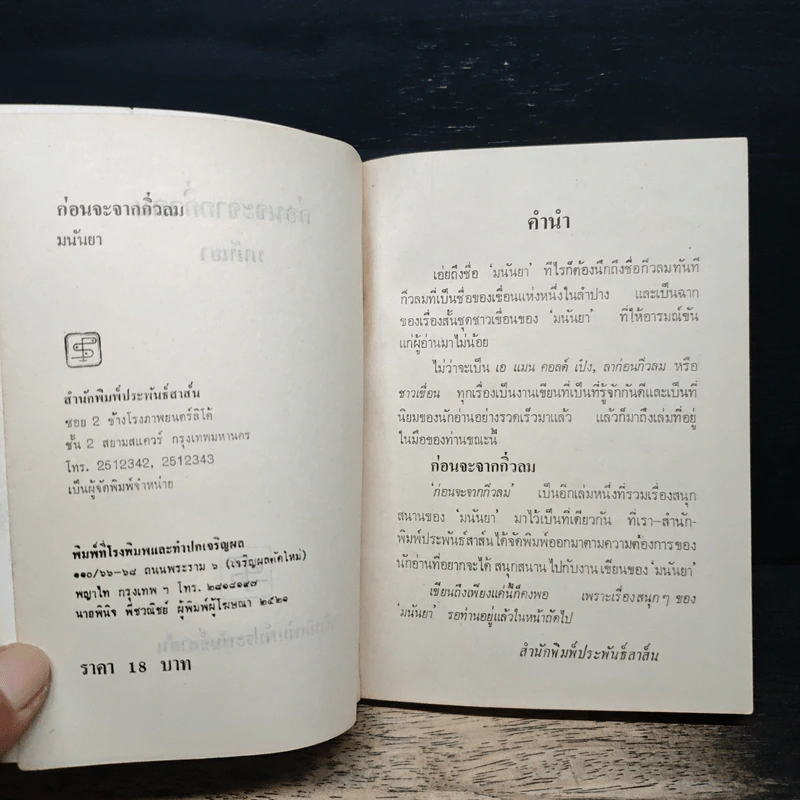 ก่อนจะจากกิ่วลม
มนันยา
สำนักพิมพ์ประพันธ์สาส์น
ซอย 2 ข้างโรงภาพยนตร์ลิโด้
ชั้น 2 สยามสแควร์ กรุงเทพมหานคร
โทร. 2512342, 2512343
เป็นผู้จัดพิมพ์จำหน่าย
พิมพ์ที่โรงพิมพและทำปกเจริญผล
๑๑๐/๖๖-๖๘ ถนนพระราม ๖ (เจริญผลตัดใหม่)
พญาไท กรุงเทพ ฯ โทร. ๒๘๑๘๑๙๗
นายพินิจ พืชวณิชย์ ผู้พิมพ์ผู้โฆษณา ๒๕๒๑
ราคา 18 บาท
คำนำ
เอ่ยถึงชื่อ ‘มนันยา’ ทีไรก็ต้องนึกถึงชื่อกิ่วลมทันที
กิ่วลมที่เป็นชื่อของเขื่อนแห่งหนึ่งในลำปาง และเป็นฉาก
ของเรื่องสั้นชุดชาวเขื่อนของ ‘มนันยา’ ที่ให้อารมณ์ขัน
แก่ผู้อ่านมาไม่น้อย
ไม่ว่าจะเป็น เอ แมน คอลด์ เป๋ง, ลาก่อนกิ่วลม หรือ
ชาวเขื่อน ทุกเรื่องเป็นงานเขียนที่เป็นที่รู้จักกันดีและเป็นที่
นิยมของนักอ่านอย่างรวดเร็วมาแล้ว แล้วก็มาถึงเล่มที่อยู่
ในมือของท่านขณะนี้
ก่อนจะจากกิ่วลม
‘ก่อนจะจากกิ่วลม’ เป็นอีกเล่มหนึ่งที่รวมเรื่องสนุก
สนานของ ‘มนันยา’ มาไว้เป็นที่เดียวกัน ที่เรา–สำนัก-
พิมพ์ประพันธ์สาส์นได้จัดพิมพ์ออกมาตามความต้องการของ
นักอ่านที่อยากจะได้ สนุกสนาน ไปกับงานเขียนของ ‘มนันยา’
เขียนถึงเพียงแค่นี้ก็คงพอ เพราะเรื่องสนุก ๆ ของ
‘มนันยา’ รอท่านอยู่แล้วในหน้าถัดไป
สำนักพิมพ์ประพันธ์สาส์น